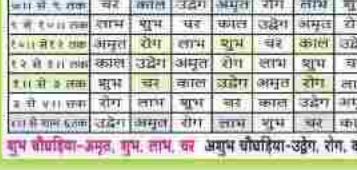 ७॥ से ९ तक चर काल उद्वेग अमृत रोग लाभ
९ से १०॥ तक लाभ शुभ चर काल उद्वेग अमृत रो
१०॥ से १२ तक अमृत रोग लाभ शुभ चर काल उद्वे
१२ से १॥ तक काल उद्वेग अमृत रोग लाभ शुभ च
१॥ से ३ तक शुभ चर काल उद्वेग अमृत रोग ला
३ से ४॥ तक रोग लाभ शुभ चर काल उद्वेग अमृ
४॥ से शाम ६ तक उद्वेग अमृत रोग लाभ शुभ चर का
शुभ चौघड़िया-अमृत, शुभ, लाभ, चर अशुभ चौघड़िया-उद्वेग, रोग,